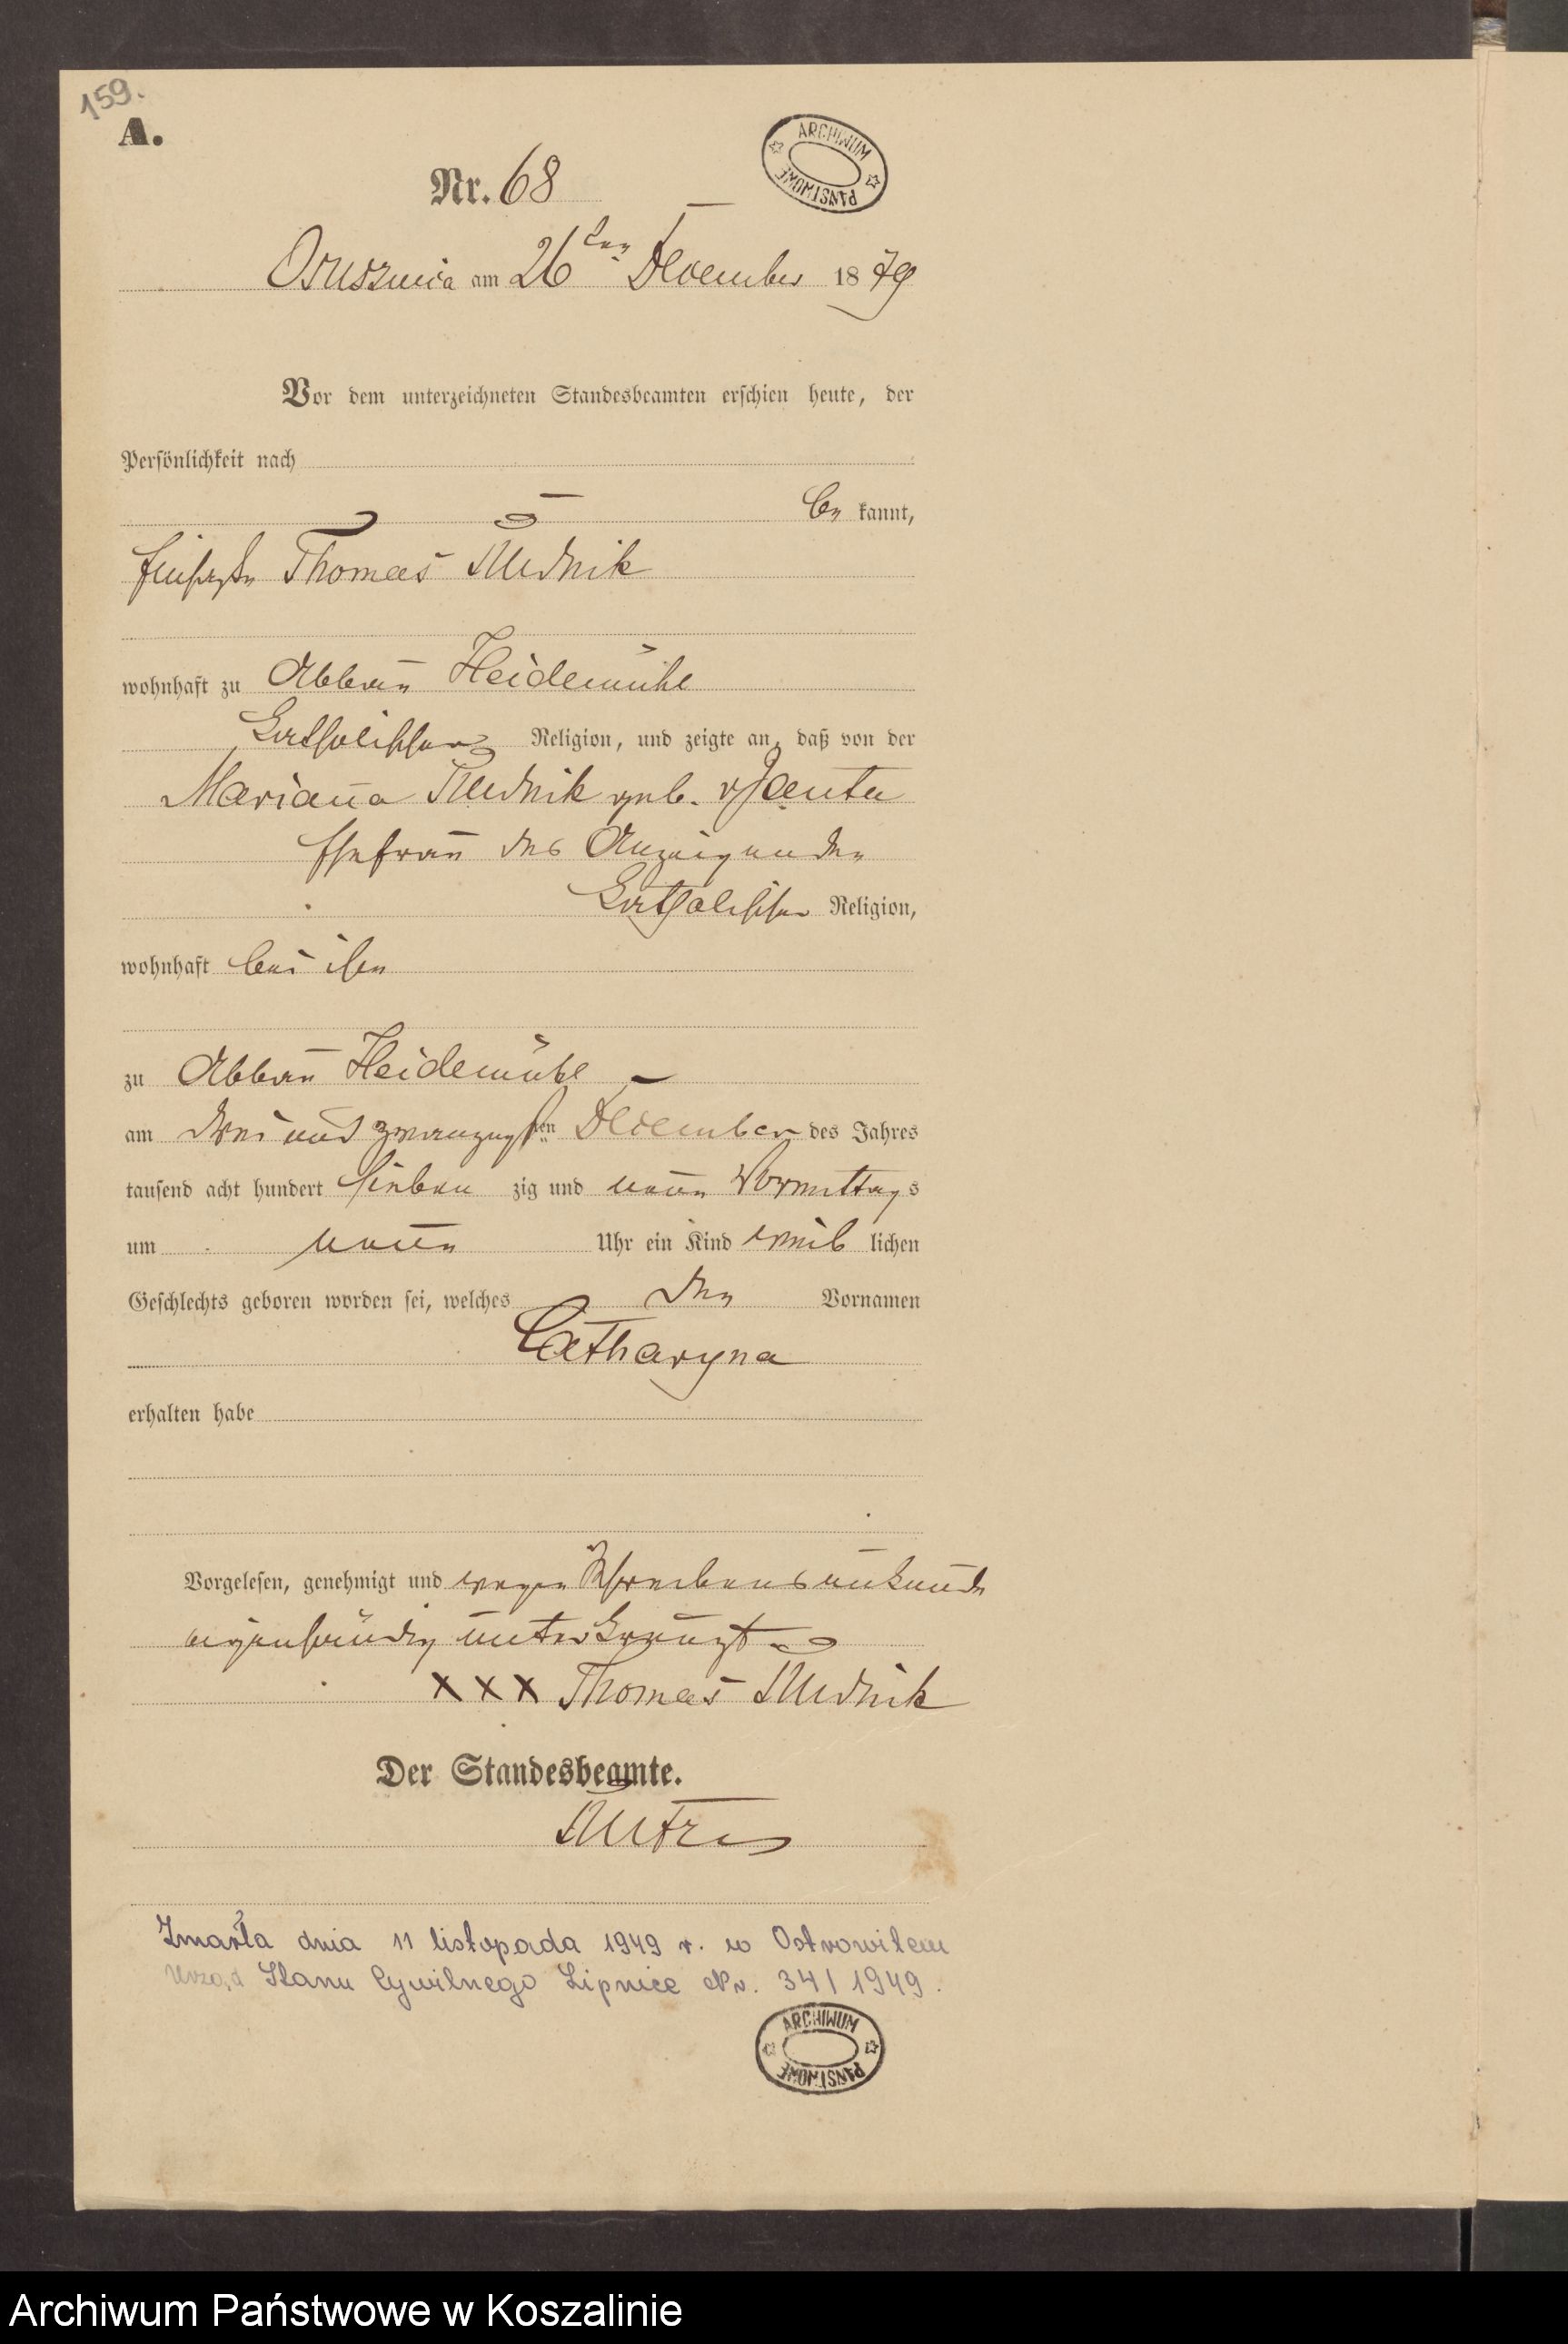 159.
A.
ARCHIWUM PAŃSTWOWE
Nr. 68
Osusznica am 26ten December 1879
Vor dem unterzeichneten Standesbeamten erschien heute, der
Persönlichkeit nach
be kannt,
Thomas Rudnik
wohnhaft zu Abbau Heidemühl
katholischer Religion, und zeigte an, daß von der
Marianna Rudnik geb. v Janta
Ehefrau des Anzeigenden
katholischer Religion,
wohnhaft bei ihm
zu Abbau Heidemühl
am drei und zwanzigsten December des Jahres
tausend acht hundert sieben zig und neun Vormittags
um neun Uhr ein Kind weib lichen
Geschlechts geboren worden sei, welches den Vornamen
Catharyna
erhalten habe
Vorgelesen, genehmigt und wegen Schreibensunkunde
eigenhändig unterkreuzt
XXX Thomas Rudnik
Der Standesbeamte.
Zmarła dnia 11 listopada 1949 r. w Ostrowitem
Urząd Stanu Cywilnego Lipnice Nr. 34/1949.
ARCHIWUM PAŃSTWOWE
Archiwum Państwowe w Koszalinie